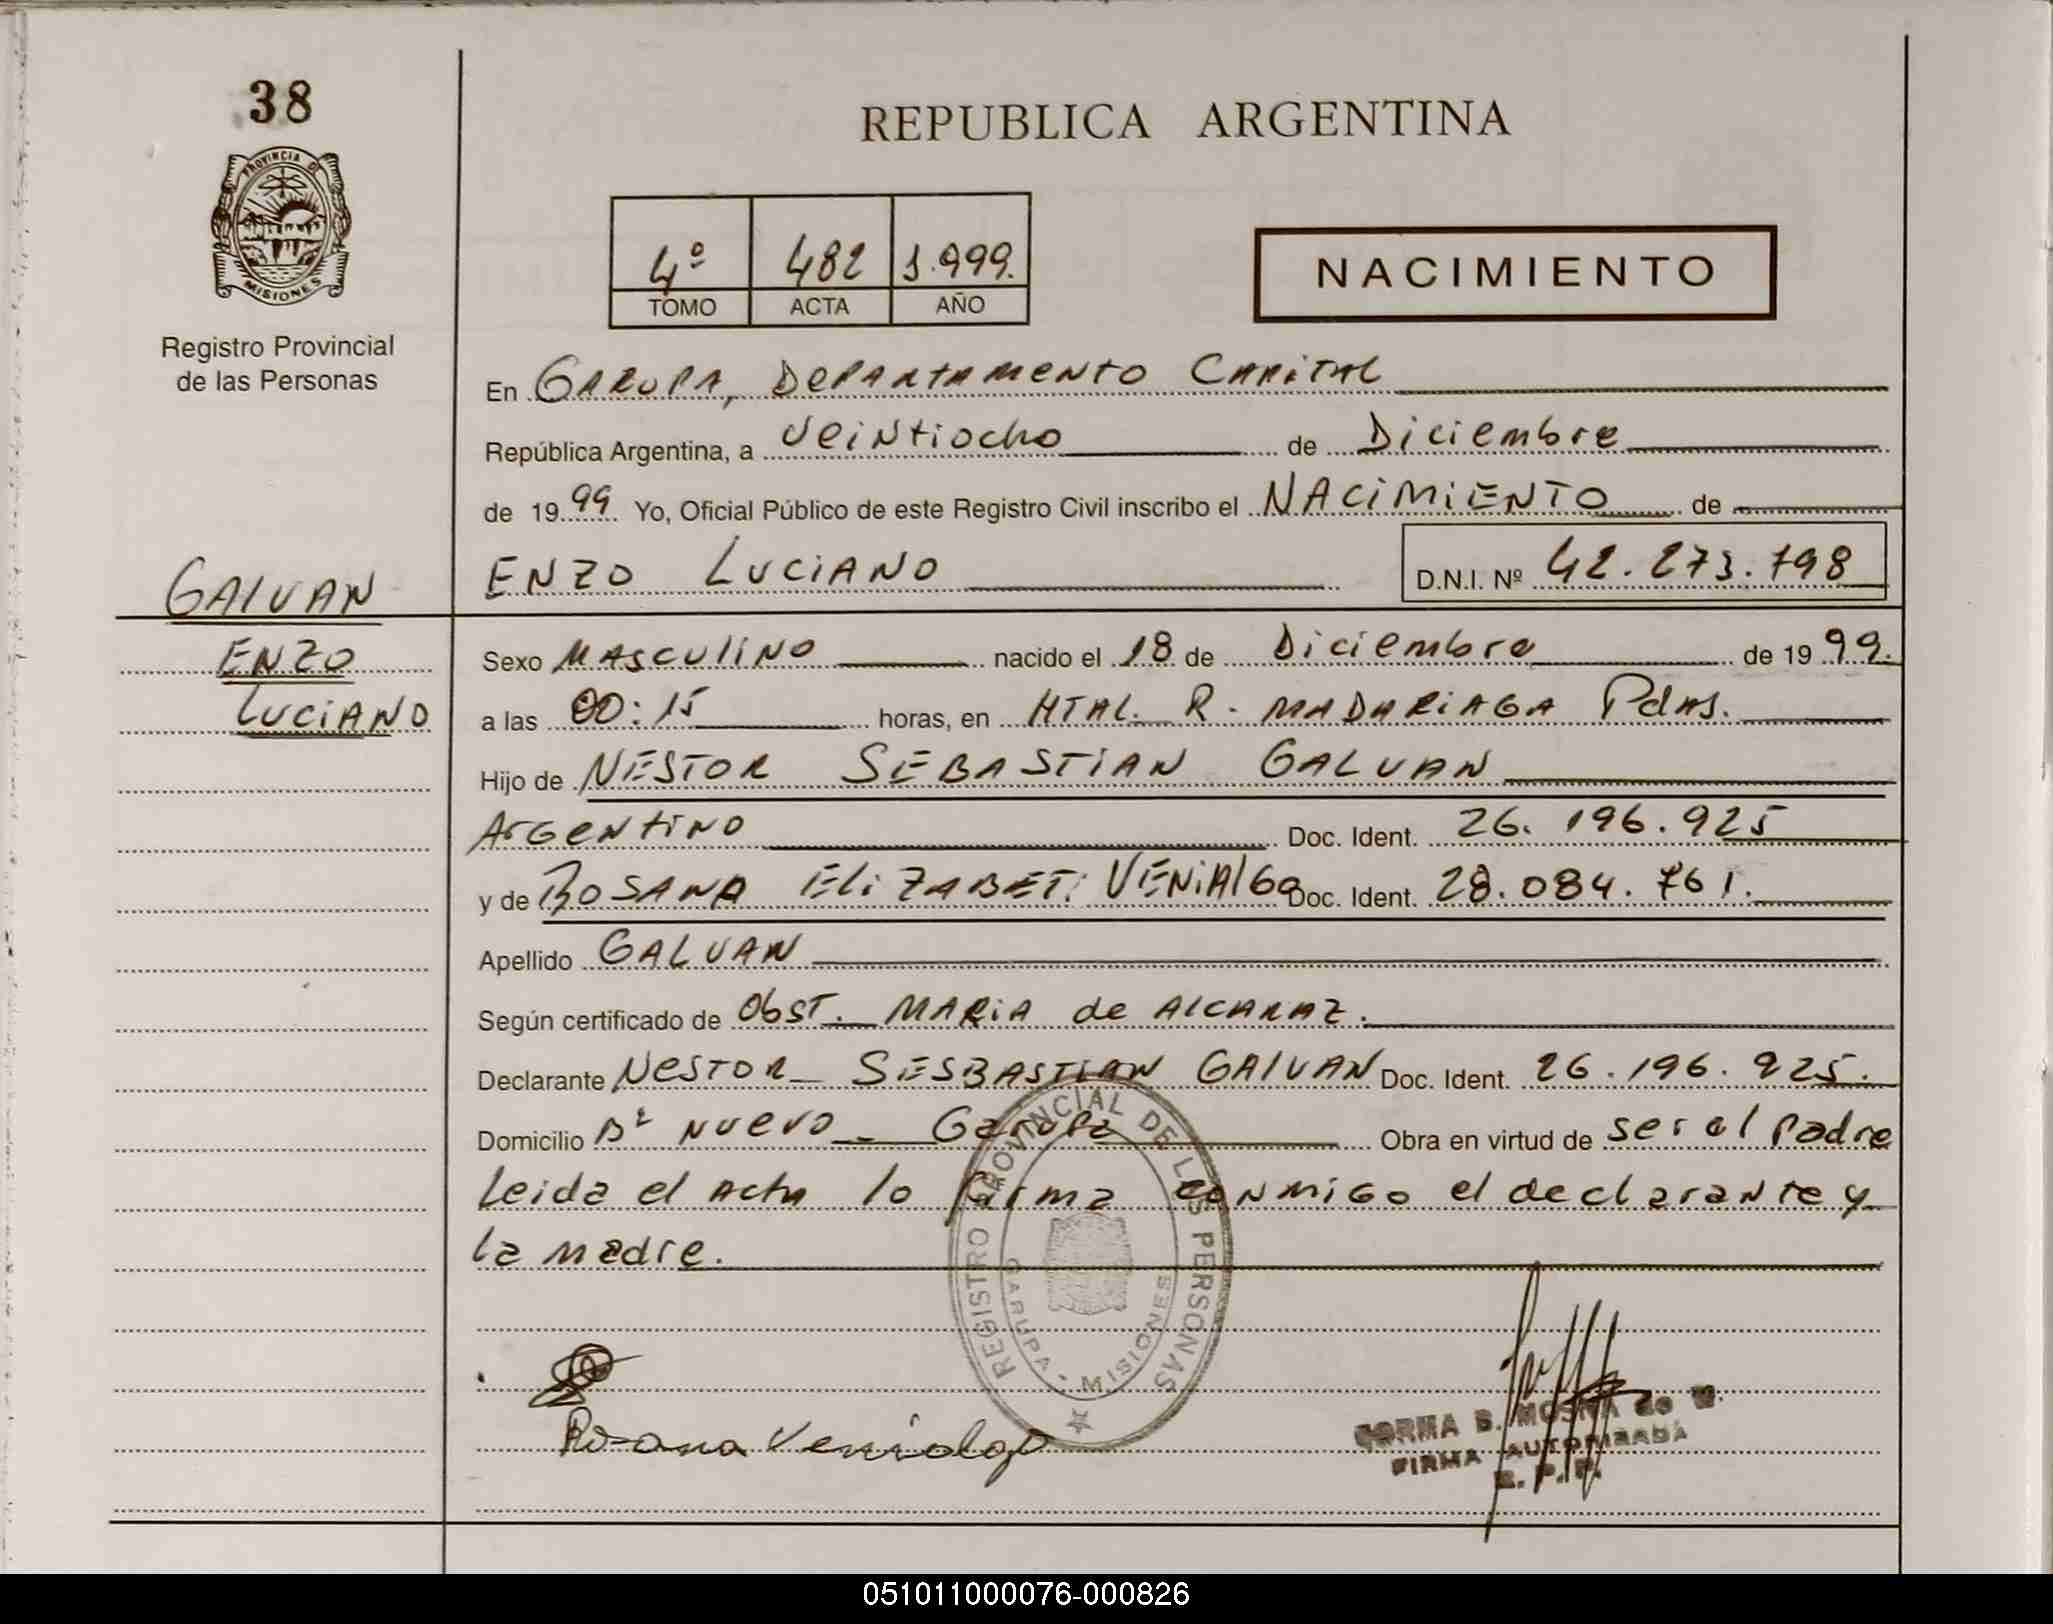 38
PROVINCIA D
MISIONES
Registro Provincial
de las Personas
GALVAN
ENZO
LUCIANO
REPUBLICA ARGENTINA
4º 482 1.999.
TOMO ACTA AÑO
NACIMIENTO
En GARUPA, DEPARTAMENTO CAPITAL
República Argentina, a Veintiocho de Diciembre
de 1999 Yo, Oficial Público de este Registro Civil inscribo el NACIMIENTO de
ENZO LUCIANO D.N.I. Nº 42.273.798
Sexo MASCULINO nacido el 18 de Diciembre de 1999.
a las 00:15 horas, en HTAL. R. MADARIAGA Pdas.
Hijo de NESTOR SEBASTIAN GALVAN
ARGENTINO Doc. Ident. 26.196.925
y de ROSANA ELIZABET. VENIALGO Doc. Ident. 28.084.761.
Apellido GALVAN
Según certificado de Obst. MARIA de ALCARAZ.
Declarante NESTOR SESBASTIAN GALVAN Doc. Ident. 26.196.925.
Domicilio Bº NUEVO - Garupa Obra en virtud de ser el Padre
Leida el Acta lo firma conmigo el declarante y
la madre.
REGISTRO PROVINCIAL DE LAS PERSONAS
GARUPA - MISIONES
Rosana Venialgo
B. MOSNA de
FIRMA AUTORIZADA
R. P. P.
051011000076-000826